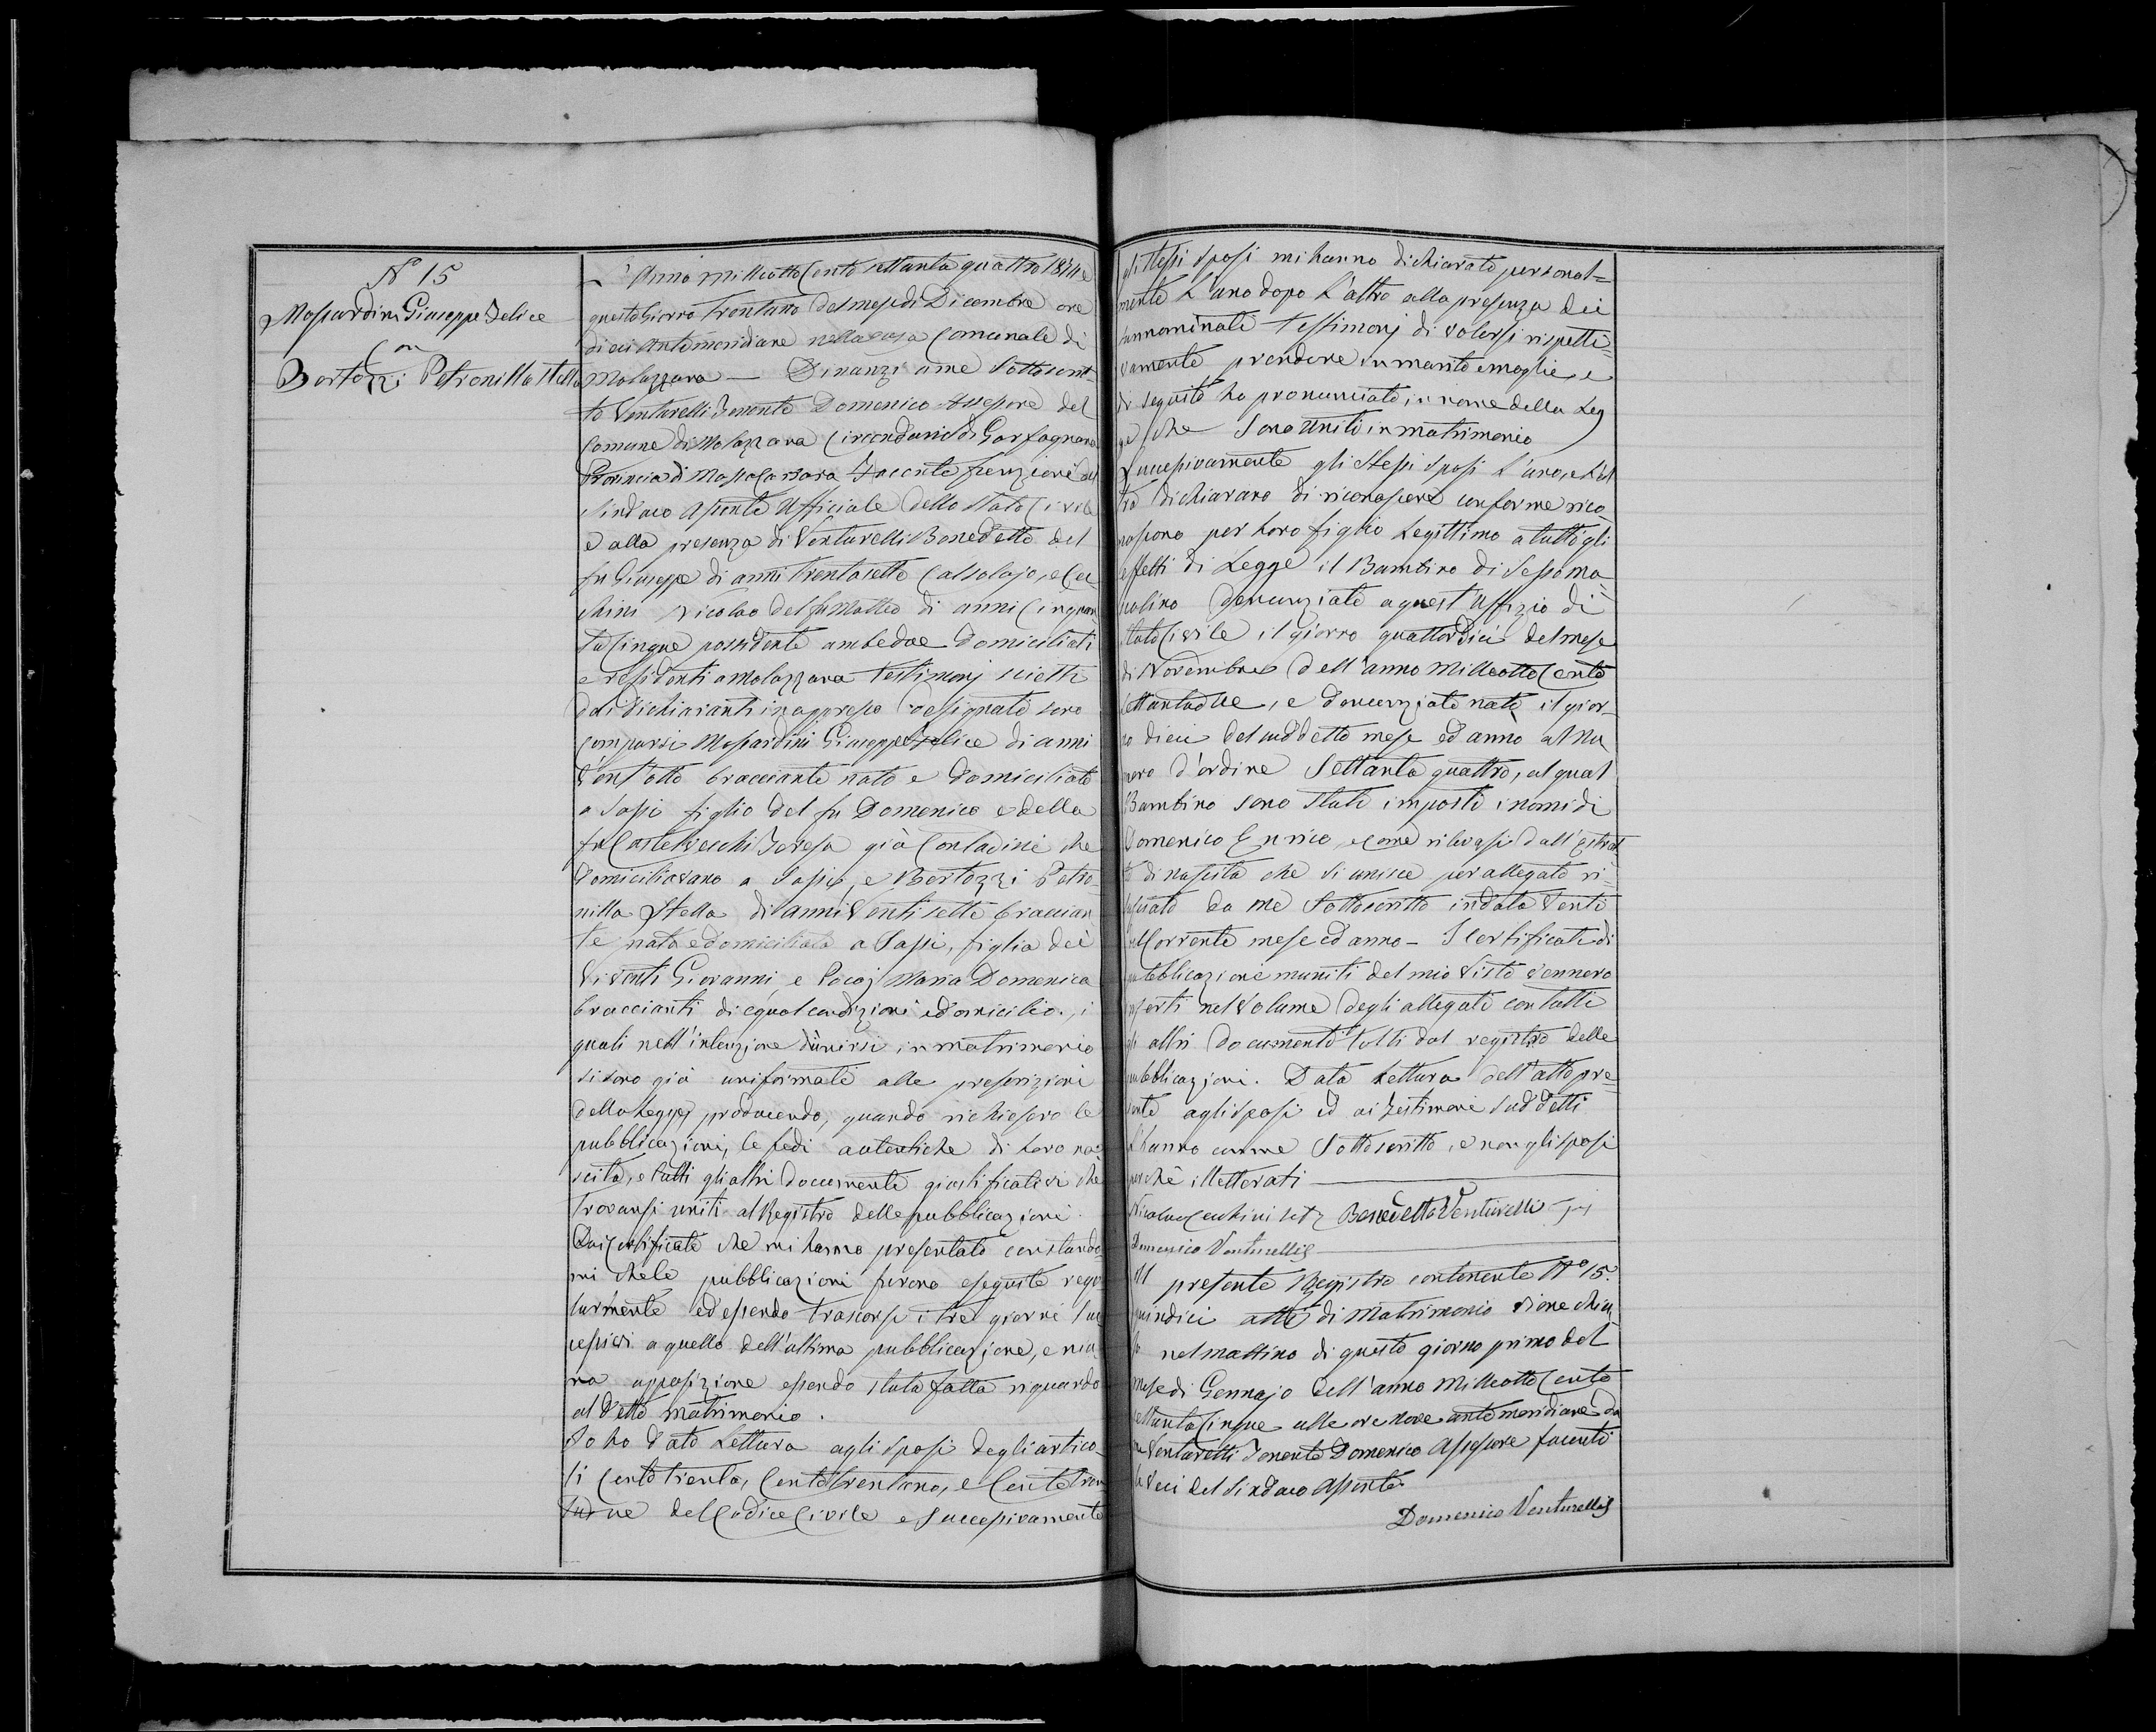 N° 15
Massardini Giuseppe Felice
con
Bertozzi Petronilla Stella
L'Anno milleottocento settanta quattro 1874 e
questo Giorno trentuno del mese di Dicembre ore
dieci antimeridiane nella casa Comunale di
Molazzana — Dinanzi a me Sottoscrit-
to Venturelli Tenente Domenico Assessore del
Comune di Molazzana Circondario di Garfagnana
Provincia di Massa Carrara Facente funzioni del
Sindaco Assente Uffiziale dello Stato Civile
e alla presenza di Venturelli Benedetto del
fu Giuseppe di anni trentasette Calzolajo, e Cec
chini Nicolao del fu Matteo di anni Cinquan
ta Cinque possidente ambedue domiciliati
e residenti a Molazzana testimonj scielti
dai dichiaranti in appresso designati sono
comparsi Massardini Giuseppe Felice di anni
Vent'otto bracciante nato e domiciliato
a Sassi figlio del fu Domenico e della
fu Castelvecchi Teresa già Contadini che
domiciliavano a Sassi, e Bertozzi Petro-
nilla Stella di anni Venti sette braccian
te nata e domiciliata a Sassi, figlia dei
Viventi Giovanni, e Pocaj Maria Domenica
braccianti di egual condizione e domicilio, i
quali nell'intenzione d'unirsi in matrimonio
si sono già uniformati alle prescrizioni
della Legge, producendo, quando richiesero le
pubblicazioni, le fedi autentiche di loro na
scita, e tutti gli altri documenti giustificativi che
trovansi uniti al Registro delle pubblicazioni.
Dai Certificati che mi hanno presentato constando
mi che le pubblicazioni furono eseguite rego
larmente ed essendo trascorsi i tre giorni suc
cessivi a quello dell'ultima pubblicazione, e niu
na opposizione essendo stata fatta riguardo
al detto matrimonio.
Io ho dato Lettura agli sposi degli artico-
li Cento trenta, Cento trentuno, e Cento tren
tadue del Codice Civile e Successivamente
Stessi sposi mi hanno dichiarato personal-
mente L'uno dopo L'altro alla presenza dei
sunnominati testimonj di volersi rispetti-
vamente prendere in marito e moglie e
di seguito ho pronunciato, in nome della Leg
ge che Sono Uniti in matrimonio
Successivamente gli Stessi sposi L'uno, e L'al
tra dichiarano di riconoscere conforme rico
noscono per loro figlio Legittimo a tutti gli
effetti di Legge il Bambino di Sesso ma
scolino denunziato a quest'Uffizio di
Stato Civile il giorno quattordici del mese
di Novembre dell'anno Milleotto Cento
settantadue, e denunziato nato il gior-
no dieci del suddetto mese ed anno al Nu
mero d'ordine Settanta quattro, al qual
Bambino sono stati imposti i nomi di
Domenico Enrico, e come rilevasi dall'Estrat
to di nascita che si unisce per allegato ri-
lasciato da me Sottoscritto in data Venti
del Corrente mese ed anno - I Certificati di
pubblicazione muniti del mio Visto vennero
inserti nel Volume degli allegati con tutti
gli altri documenti tolti dal registro delle
pubblicazioni. Data Lettura dell'atto pre-
sente agli sposi ed ai testimoni suddetti
L'hanno con me Sottoscritto, e non gli sposi
perchè illetterati
Nicolao Cecchini Benedetto Venturelli
Domenico Venturelli
Il presente Registro contenente N° 15.
quindici atti di Matrimonio viene chiu
so nel mattino di questo giorno primo del
mese di Gennajo dell'anno Milleotto Cento
settanta Cinque alle ore nove antimeridiane da
me Venturelli Tenente Domenico Assessore facente
le Veci del Sindaco Assente.
Domenico Venturelli